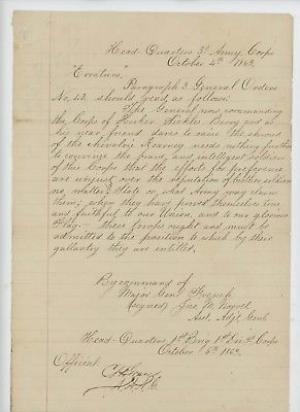 Head-Quarters 3d Army Corps
October 4th 1863.
"Erratum."
Paragraph 3 General Orders
No. 43, should read as follows:
The General now commanding
the Corps of Hooker, Sickles, Berry and as
his near friend dares to raise the shroud
of the chivalric Kearney needs nothing further
to convince the brave, and intelligent soldiers
of this Corps that the efforts for preference
are
over the reputation of
no matter, State or what Army may claim
them; when they have proved themselves true
and faithful to our Union, and to our glorious
flag. These troops ought and must be
admitted to the position to which by their
gallantry they are entitled.
By command of
Major Genl French
(signed)
Asst. Adjt. Genl.
Head-Quarters 1st Brig 1st Div 3d Corps
October 5th 1863.
Official